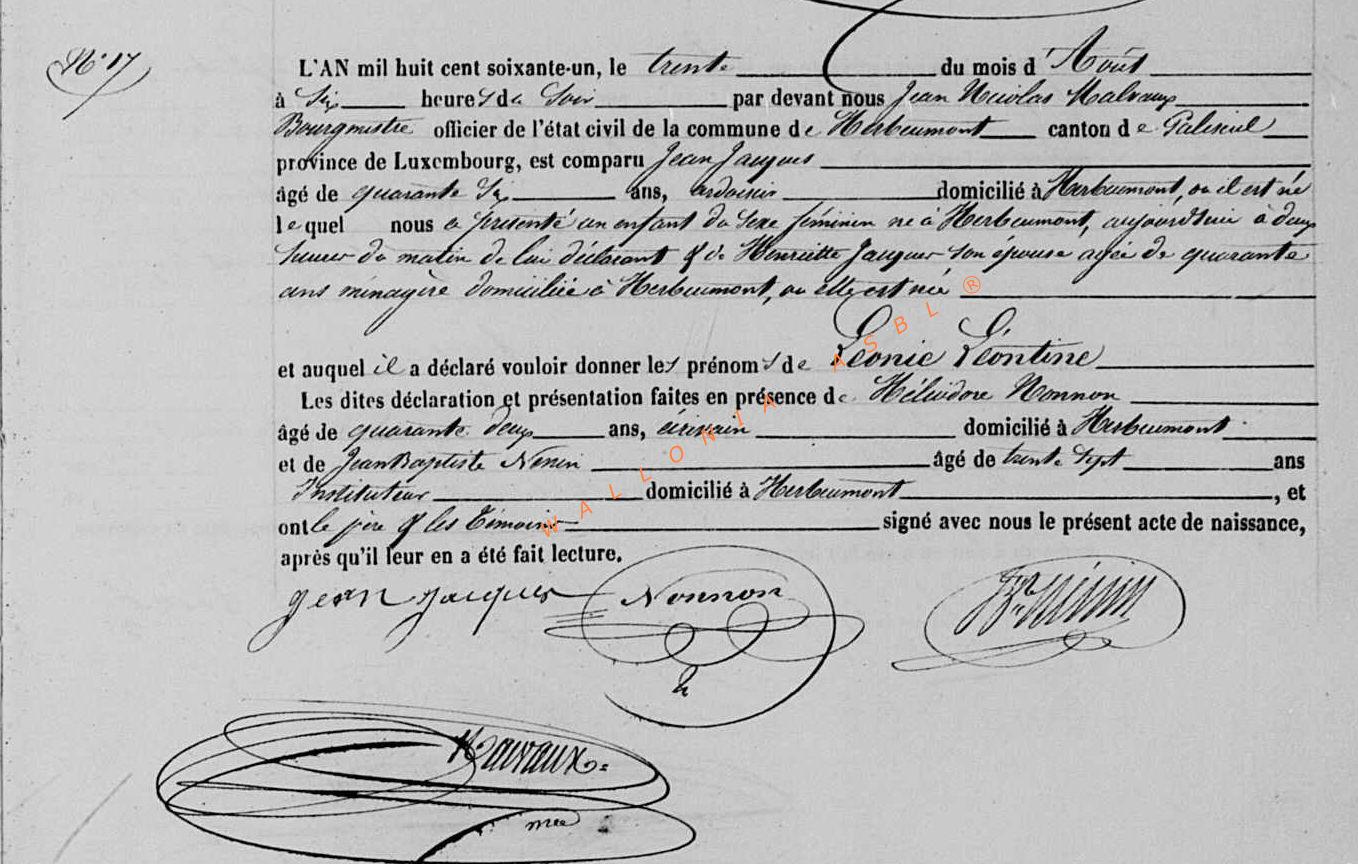 N° 17
L'AN mil huit cent soixante-un, le trente du mois d'Août
à Six heures du Soir par devant nous Jean Nicolas Malvaux
Bourgmistre officier de l'état civil de la commune de Herbeumont canton de Paliseul
province de Luxembourg, est comparu Jean Jacques
âgé de quarante Six ans, ardoisier domicilié à Herbeumont, ou il est né
lequel nous a présenté un enfant du sexe féminin né à Herbeumont, aujourd'hui à deux
heures du matin de lui déclarant & de Henriette Jacques son épouse agée de quarante
ans ménagère domiciliée à Herbeumont, ou elle est née
et auquel il a déclaré vouloir donner les prénoms de Léonie Léontine
Les dites déclaration et présentation faites en présence de Héliodore Nonnon
âgé de quarante deux ans, écrivain domicilié à Herbeumont
et de Jean Baptiste Nenin âgé de trente Sept ans
Instituteur domicilié à Herbeumont, et
ont le père & les témoins signé avec nous le présent acte de naissance,
après qu'il leur en a été fait lecture.
Jean Jacques Nonnon
Malvaux
WALLONIA ASBL ®